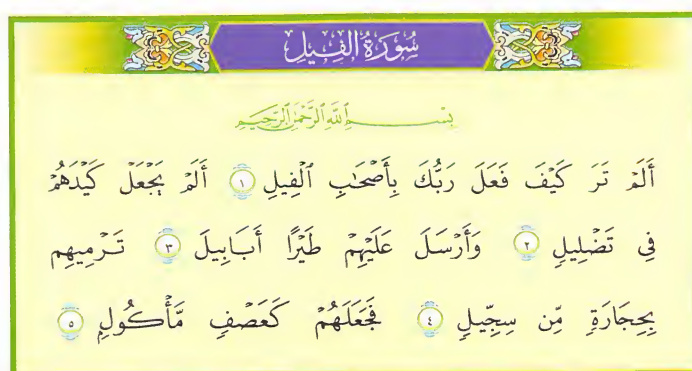 سُورَةُ الفِيلِ
بِسْمِ ٱللَّهِ ٱلرَّحْمَٰنِ ٱلرَّحِيمِ
أَلَمْ تَرَ كَيْفَ فَعَلَ رَبُّكَ بِأَصْحَٰبِ ٱلْفِيلِ ١ أَلَمْ يَجْعَلْ كَيْدَهُمْ
فِي تَضْلِيلٍ ٢ وَأَرْسَلَ عَلَيْهِمْ طَيْرًا أَبَابِيلَ ٣ تَرْمِيهِم
بِحِجَارَةٍ مِّن سِجِّيلٍ ٤ فَجَعَلَهُمْ كَعَصْفٍ مَّأْكُولٍ ٥